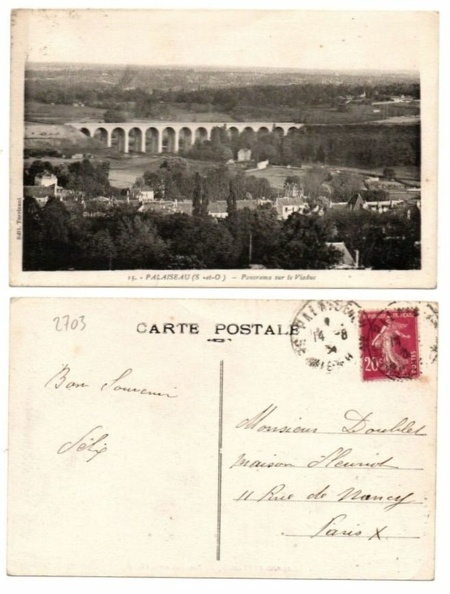 Edit. Thévenet
15. - PALAISEAU (S.-et-O.) - Panorama sur le Viaduc
2703
CARTE POSTALE
PALAISEAU
14 - 8
20c
Bon Souvenir
Félix
Monsieur Doublet
maison Henriot
11 Rue de Nancy
Paris X